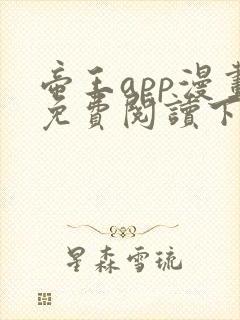 帝王app漫畫
免費閱讀下
星森雪琉